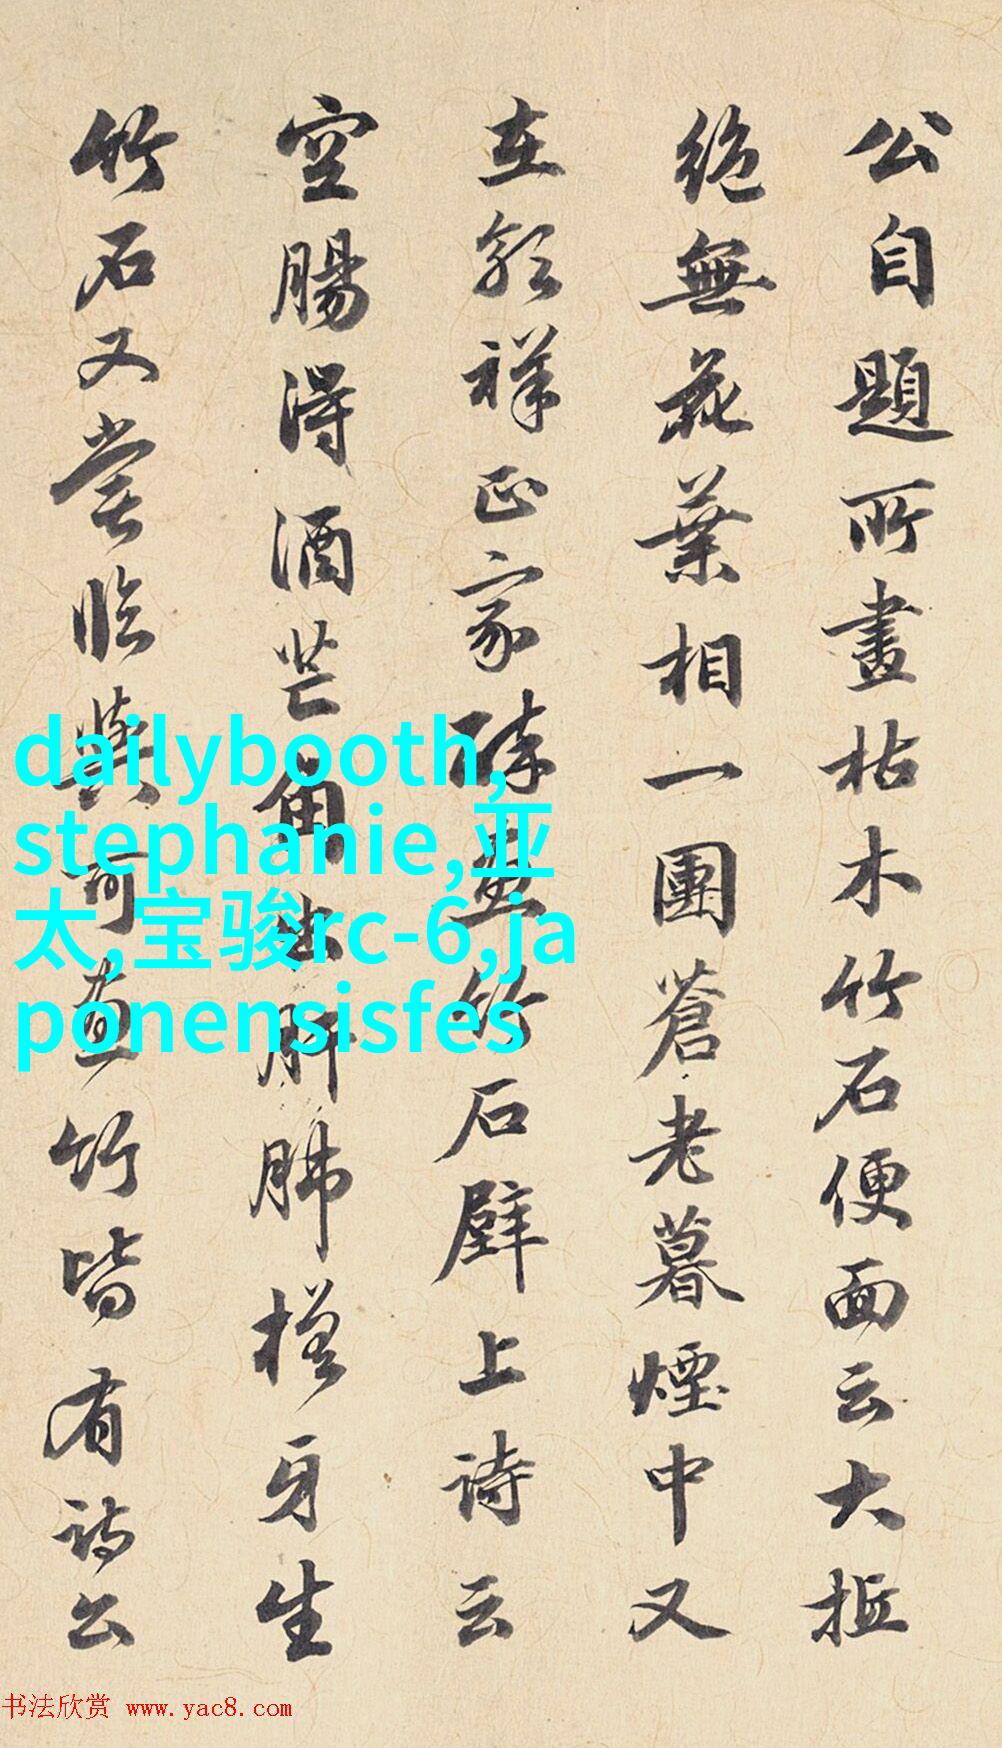 公自題所畫枯木竹石便面云大抵
絶無花葉相一團蒼老暮煙中又
在郭祥正家醉畫竹石壁上诗云
空腸得酒芒角出肝肺槎牙生
竹石又嘗臨與可畫竹皆有詩公
dailybooth,
stephanie,亚
太,宝骏rc-6,ja
ponensisfes
书法欣赏 www.yac8.com